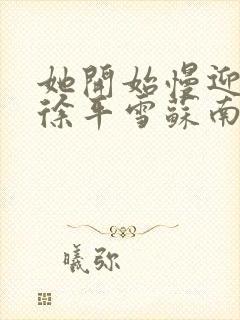 她開始慢迎
徐平雪蘇南
曦弥